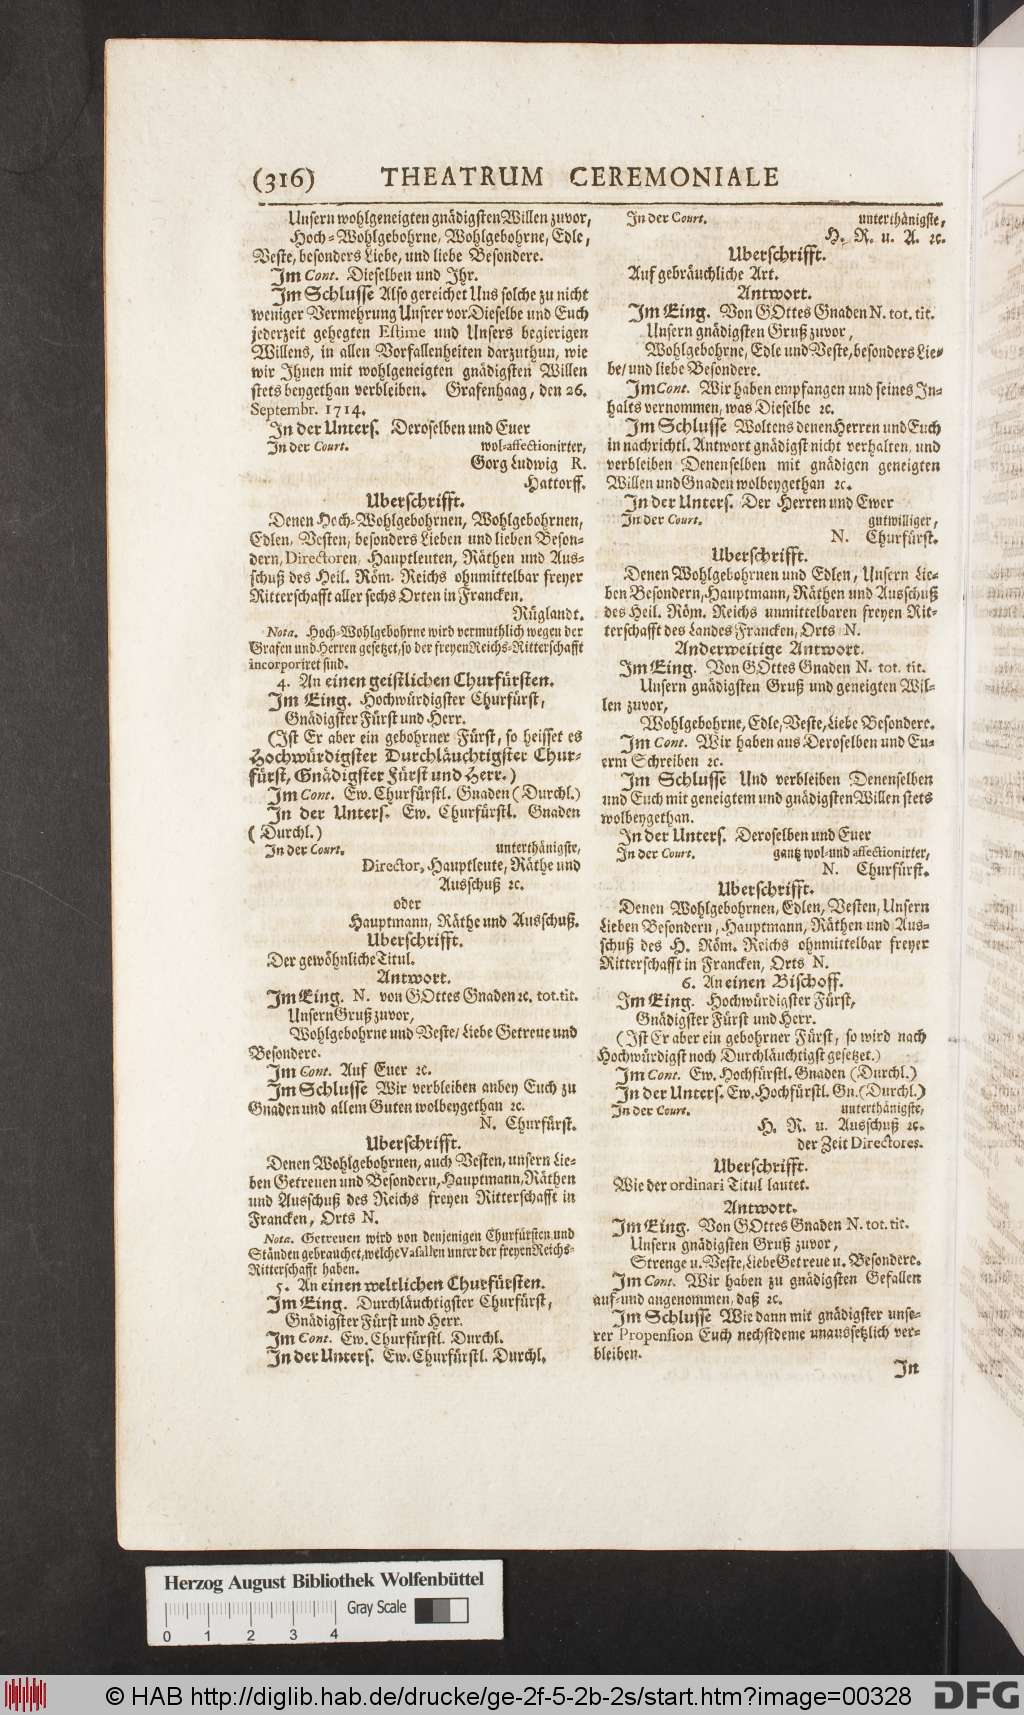 (316) THEATRUM CEREMONIALE
Unsern wohlgeneigten gnädigsten Willen zuvor,
Hoch-Wohlgebohrne/ Wohlgebohrne, Edle,
Veste, besonders Liebe, und liebe Besondere.
Im Cont. Dieselben und Ihr.
Im Schlusse Also gereichet Uns solche zu nicht
weniger Vermehrung Unsrer vor Dieselbe und Euch
jederzeit gehegten Estime und Unsers begierigen
Willens, in allen Vorfallenheiten darzuthun, wie
wir Ihnen mit wohlgeneigten gnädigsten Willen
stets beygethan verbleiben. Grafenhaag, den 26.
Septembr. 1714.
In der Unters. Deroselben und Euer
In der Court. wol-affectionirter,
Gorg Ludwig R.
Hattorff.
Uberschrifft.
Denen Hoch-Wohlgebohrnen, Wohlgebohrnen,
Edlen, Vesten, besonders Lieben und lieben Beson-
dern, Directoren, Hauptleuten, Räthen und Aus-
schuß des Heil. Röm. Reichs ohnmittelbar freyer
Ritterschafft aller sechs Orten in Francken.
Rüglandt.
Nota. Hoch-Wohlgebohrne wird vermuthlich wegen der
Grafen und Herren gesetzet, so der freyen Reichs-Ritterschafft
incorporiret sind.
4. An einen geistlichen Churfürsten.
Im Eing. Hochwürdigster Churfürst,
Gnädigster Fürst und Herr.
(Ist Er aber ein gebohrner Fürst, so heisset es
Hochwürdigster Durchläuchtigster Chur-
fürst, Gnädigster Fürst und Herr.)
Im Cont. Ew. Churfürstl. Gnaden (Durchl.)
In der Unters. Ew. Churfürstl. Gnaden
(Durchl.)
In der Court. unterthänigste,
Director, Hauptleute, Räthe und
Ausschuß ꝛc.
oder
Hauptmann, Räthe und Ausschuß.
Uberschrifft.
Der gewöhnliche Titul.
Antwort.
Im Eing. N. von GOttes Gnaden ꝛc. tot. tit.
Unsern Gruß zuvor,
Wohlgebohrne und Veste/ Liebe Getreue und
Besondere.
Im Cont. Auf Euer ꝛc.
Im Schlusse Wir verbleiben anbey Euch zu
Gnaden und allem Guten wolbeygethan ꝛc.
N. Churfürst.
Uberschrifft.
Denen Wohlgebohrnen, auch Vesten, unsern Lie-
ben Getreuen und Besondern, Hauptmann, Räthen
und Ausschuß des Reichs freyen Ritterschafft in
Francken, Orts N.
Nota. Getreuen wird von denjenigen Churfürsten und
Ständen gebrauchet, welche Vasallen unter der freyen Reichs-
Ritterschafft haben.
5. An einen weltlichen Churfürsten.
Im Eing. Durchläuchtigster Churfürst,
Gnädigster Fürst und Herr.
Im Cont. Ew. Churfürstl. Durchl.
In der Unters. Ew. Churfürstl. Durchl.
In der Court. unterthänigste,
H. R. u. A. ꝛc.
Uberschrifft.
Auf gebräuchliche Art.
Antwort.
Im Eing. Von GOttes Gnaden N. tot. tit.
Unsern gnädigsten Gruß zuvor,
Wohlgebohrne, Edle und Veste, besonders Lie-
be/ und liebe Besondere.
Im Cont. Wir haben empfangen und seines In-
halts vernommen, was Dieselbe ꝛc.
Im Schlusse Woltens denen Herren und Euch
in nachrichtl. Antwort gnädigst nicht verhalten, und
verbleiben Denenselben mit gnädigen geneigten
Willen und Gnaden wolbeygethan ꝛc.
In der Unters. Der Herren und Ewer
In der Court. gutwilliger,
N. Churfürst.
Uberschrifft.
Denen Wohlgebohrnen und Edlen, Unsern Lie-
ben Besondern, Hauptmann, Räthen und Ausschuß
des Heil. Röm. Reichs unmittelbaren freyen Rit-
terschafft des Landes Francken, Orts N.
Anderweitige Antwort.
Im Eing. Von GOttes Gnaden N. tot. tit.
Unsern gnädigsten Gruß und geneigten Wil-
len zuvor,
Wohlgebohrne, Edle, Veste, Liebe Besondere.
Im Cont. Wir haben aus Deroselben und Eu-
erm Schreiben ꝛc.
Im Schlusse Und verbleiben Denenselben
und Euch mit geneigtem und gnädigsten Willen stets
wolbeygethan.
In der Unters. Deroselben und Euer
In der Court. gantz wol-und affectionirter,
N. Churfürst.
Uberschrifft.
Denen Wohlgebohrnen, Edlen, Vesten, Unsern
Lieben Besondern, Hauptmann, Räthen und Aus-
schuß des H. Röm. Reichs ohnmittelbar freyer
Ritterschafft in Francken, Orts N.
6. An einen Bischoff.
Im Eing. Hochwürdigster Fürst,
Gnädigster Fürst und Herr.
(Ist Er aber ein gebohrner Fürst, so wird nach
Hochwürdigst noch Durchläuchtigst gesetzet.)
Im Cont. Ew. Hochfürstl. Gnaden (Durchl.)
In der Unters. Ew. Hochfürstl. Gn. (Durchl.)
In der Court. unterthänigste,
H. R. u. Ausschuß ꝛc.
der Zeit Directores.
Uberschrifft.
Wie der ordinari Titul lautet.
Antwort.
Im Eing. Von GOttes Gnaden N. tot. tit.
Unsern gnädigsten Gruß zuvor,
Strenge u. Veste, Liebe Getreue u. Besondere.
Im Cont. Wir haben zu gnädigsten Gefallen
auf-und angenommen, daß ꝛc.
Im Schlusse Wie dann mit gnädigster unse-
rer Propension Euch nechstdeme unaussetzlich ver-
bleiben.
In
Herzog August Bibliothek Wolfenbüttel
Gray Scale
0 1 2 3 4
© HAB http://diglib.hab.de/drucke/ge-2f-5-2b-2s/start.htm?image=00328
DFG